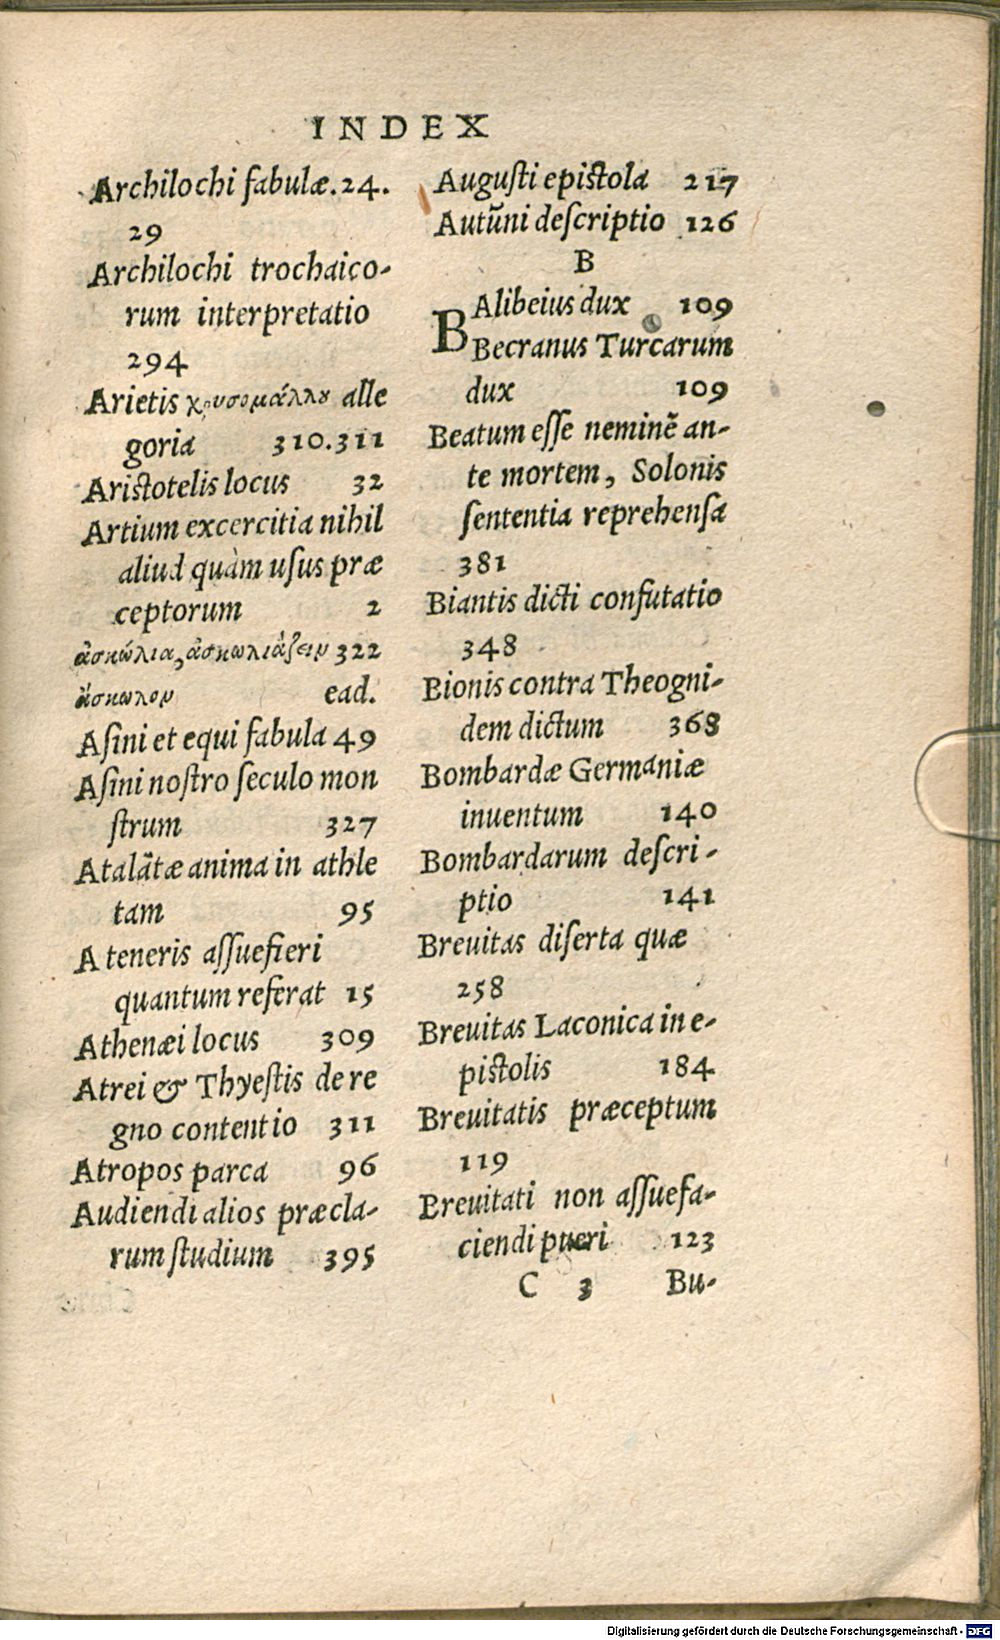 INDEX
Archilochi fabulæ. 24.
29
Archilochi trochaico-
rum interpretatio
294
Arietis χρυσομάλλου alle
goria 310.311
Aristotelis locus 32
Artium excercitia nihil
aliud quàm usus præ
ceptorum 2
ἀσκώλια, ἀσκωλιάζειν 322
ἄσκωλον ead.
Asini et equi fabula 49
Asini nostro seculo mon
strum 327
Atalātæ anima in athle
tam 95
A teneris assuefieri
quantum referat 15
Athenæi locus 309
Atrei & Thyestis de re
gno contentio 311
Atropos parca 96
Audiendi alios præcla-
rum studium 395
Augusti epistola 217
Autūni descriptio 126
B
BAlibeius dux 109
Becranus Turcarum
dux 109
Beatum esse neminē an-
te mortem, Solonis
sententia reprehensa
381
Biantis dicti confutatio
348
Bionis contra Theogni-
dem dictum 368
Bombardæ Germaniæ
inuentum 140
Bombardarum descri-
ptio 141
Breuitas diserta quæ
258
Breuitas Laconica in e-
pistolis 184
Breuitatis præceptum
119
Breuitati non assuefa-
ciendi pueri 123
C 3 Bu-
Digitalisierung gefördert durch die Deutsche Forschungsgemeinschaft - DFG